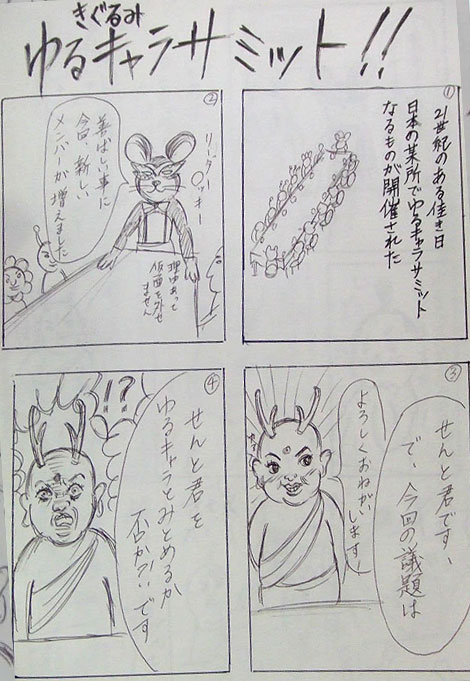 きぐるみ
ゆるキャラサミット!!
①
21世紀のある佳き日
日本の某所でゆるキャラサミット
なるものが開催された
②
リーダー
キー
喜ばしい事に
今回 新しい
メンバーが
増えました
理由あって
仮面を外せ
ません
③
せんと君です、
で、今回の議題は
よろしくおねがい
します!
④
!?
せんと君を
ゆるキャラとみとめるか
否か?! です